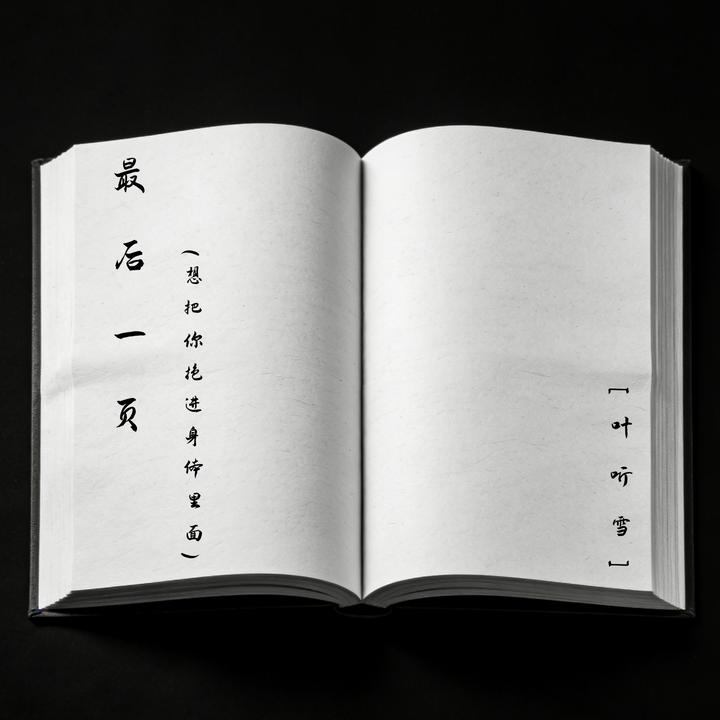 最后一页
(想把你抱进身体里面)
[叶听雪]